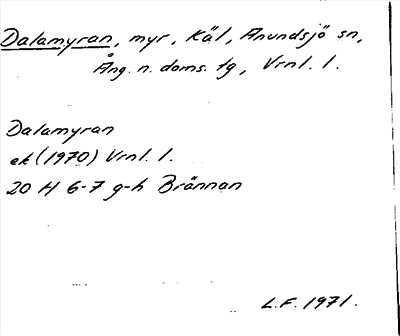 Dalamyran, myr, Käl, Anundsjö sn,
Ång. n. doms. tg, Vrnl. l.
Dalamyran
ek (1970) Vrnl. l.
20 H 6-7 g-h Brännan
L.F. 1971.